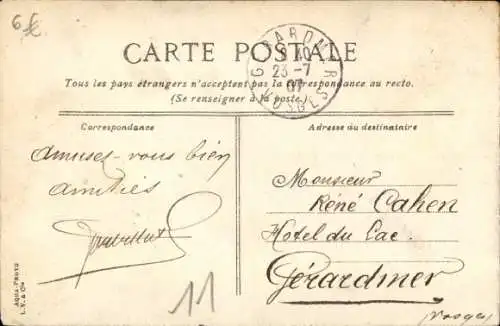 6f
CARTE POSTALE
GÉRARDMER
8 40
23-7
07
VOSGES
Tous les pays étrangers n'acceptent pas la correspondance au recto.
(Se renseigner à la poste.)
Correspondance
Adresse du destinataire
Amusez-vous bien
amitiés
Monsieur
Réné Cahen
Hotel du Lac.
Gérardmer
Vosges
11
AQUA-PHOTO
L.V. & Cie